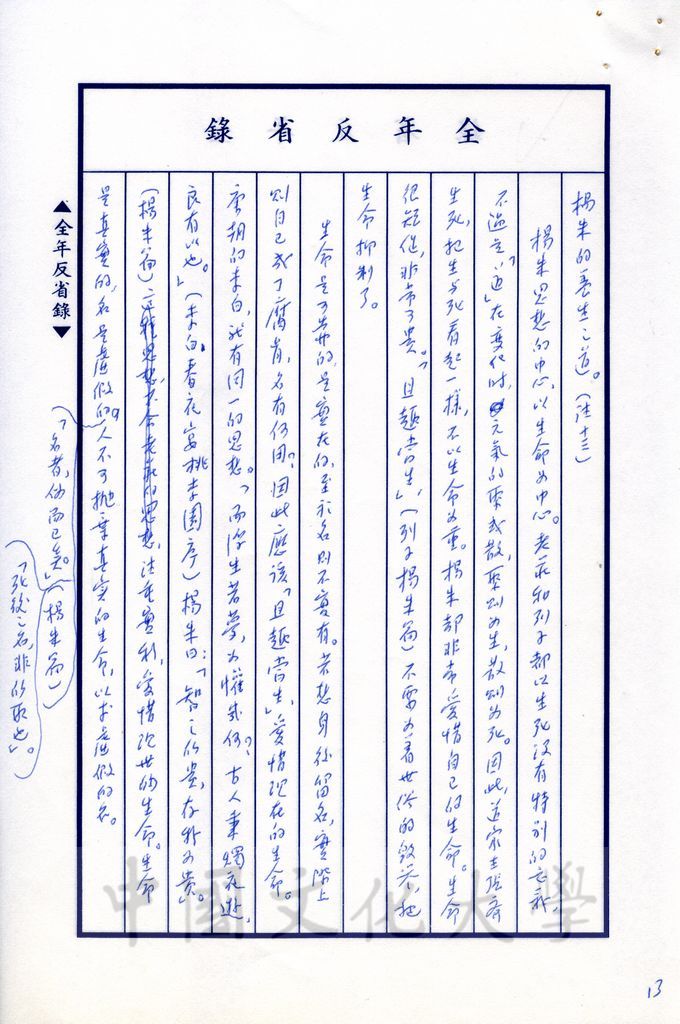 錄省反年全
楊朱的養生之道。(註十三)
楊朱思想的中心,以生命為中心。老莊和列子都以生死沒有特別的意義,
不過是「道」在變化時,元氣的聚或散,聚則為生,散則為死。因此,道家主張齊
生死,把生與死看起一樣,不以生命為重。楊朱却非常愛惜自己的生命。生命
很短促,非常可貴。「且趣當生」,(列子楊朱篇)不需為着世俗的毀譽,把
生命抑制了。
生命是可貴的,是實在的,至於名則不實有。若想身後留名,實際上
則自己成了腐骨,名有何用?因此應該「且趣當生」,愛惜現在的生命。
唐朝的李白,就有同一的思想。「而浮生若夢,為懽幾何?古人秉燭夜遊,
良有以也。」(李白,春夜宴桃李園序)楊朱曰:「智之所貴,存我為貴」。
(楊朱篇)注重實利,愛惜現世的生命。生命
是真實的,名是虛假的,人不可拋棄真實的生命,以求虛假的名。
「名者,偽而已矣。」(楊朱篇)
「死後之名,非所取也」。
▲全年反省錄▼
中國文化大學
13